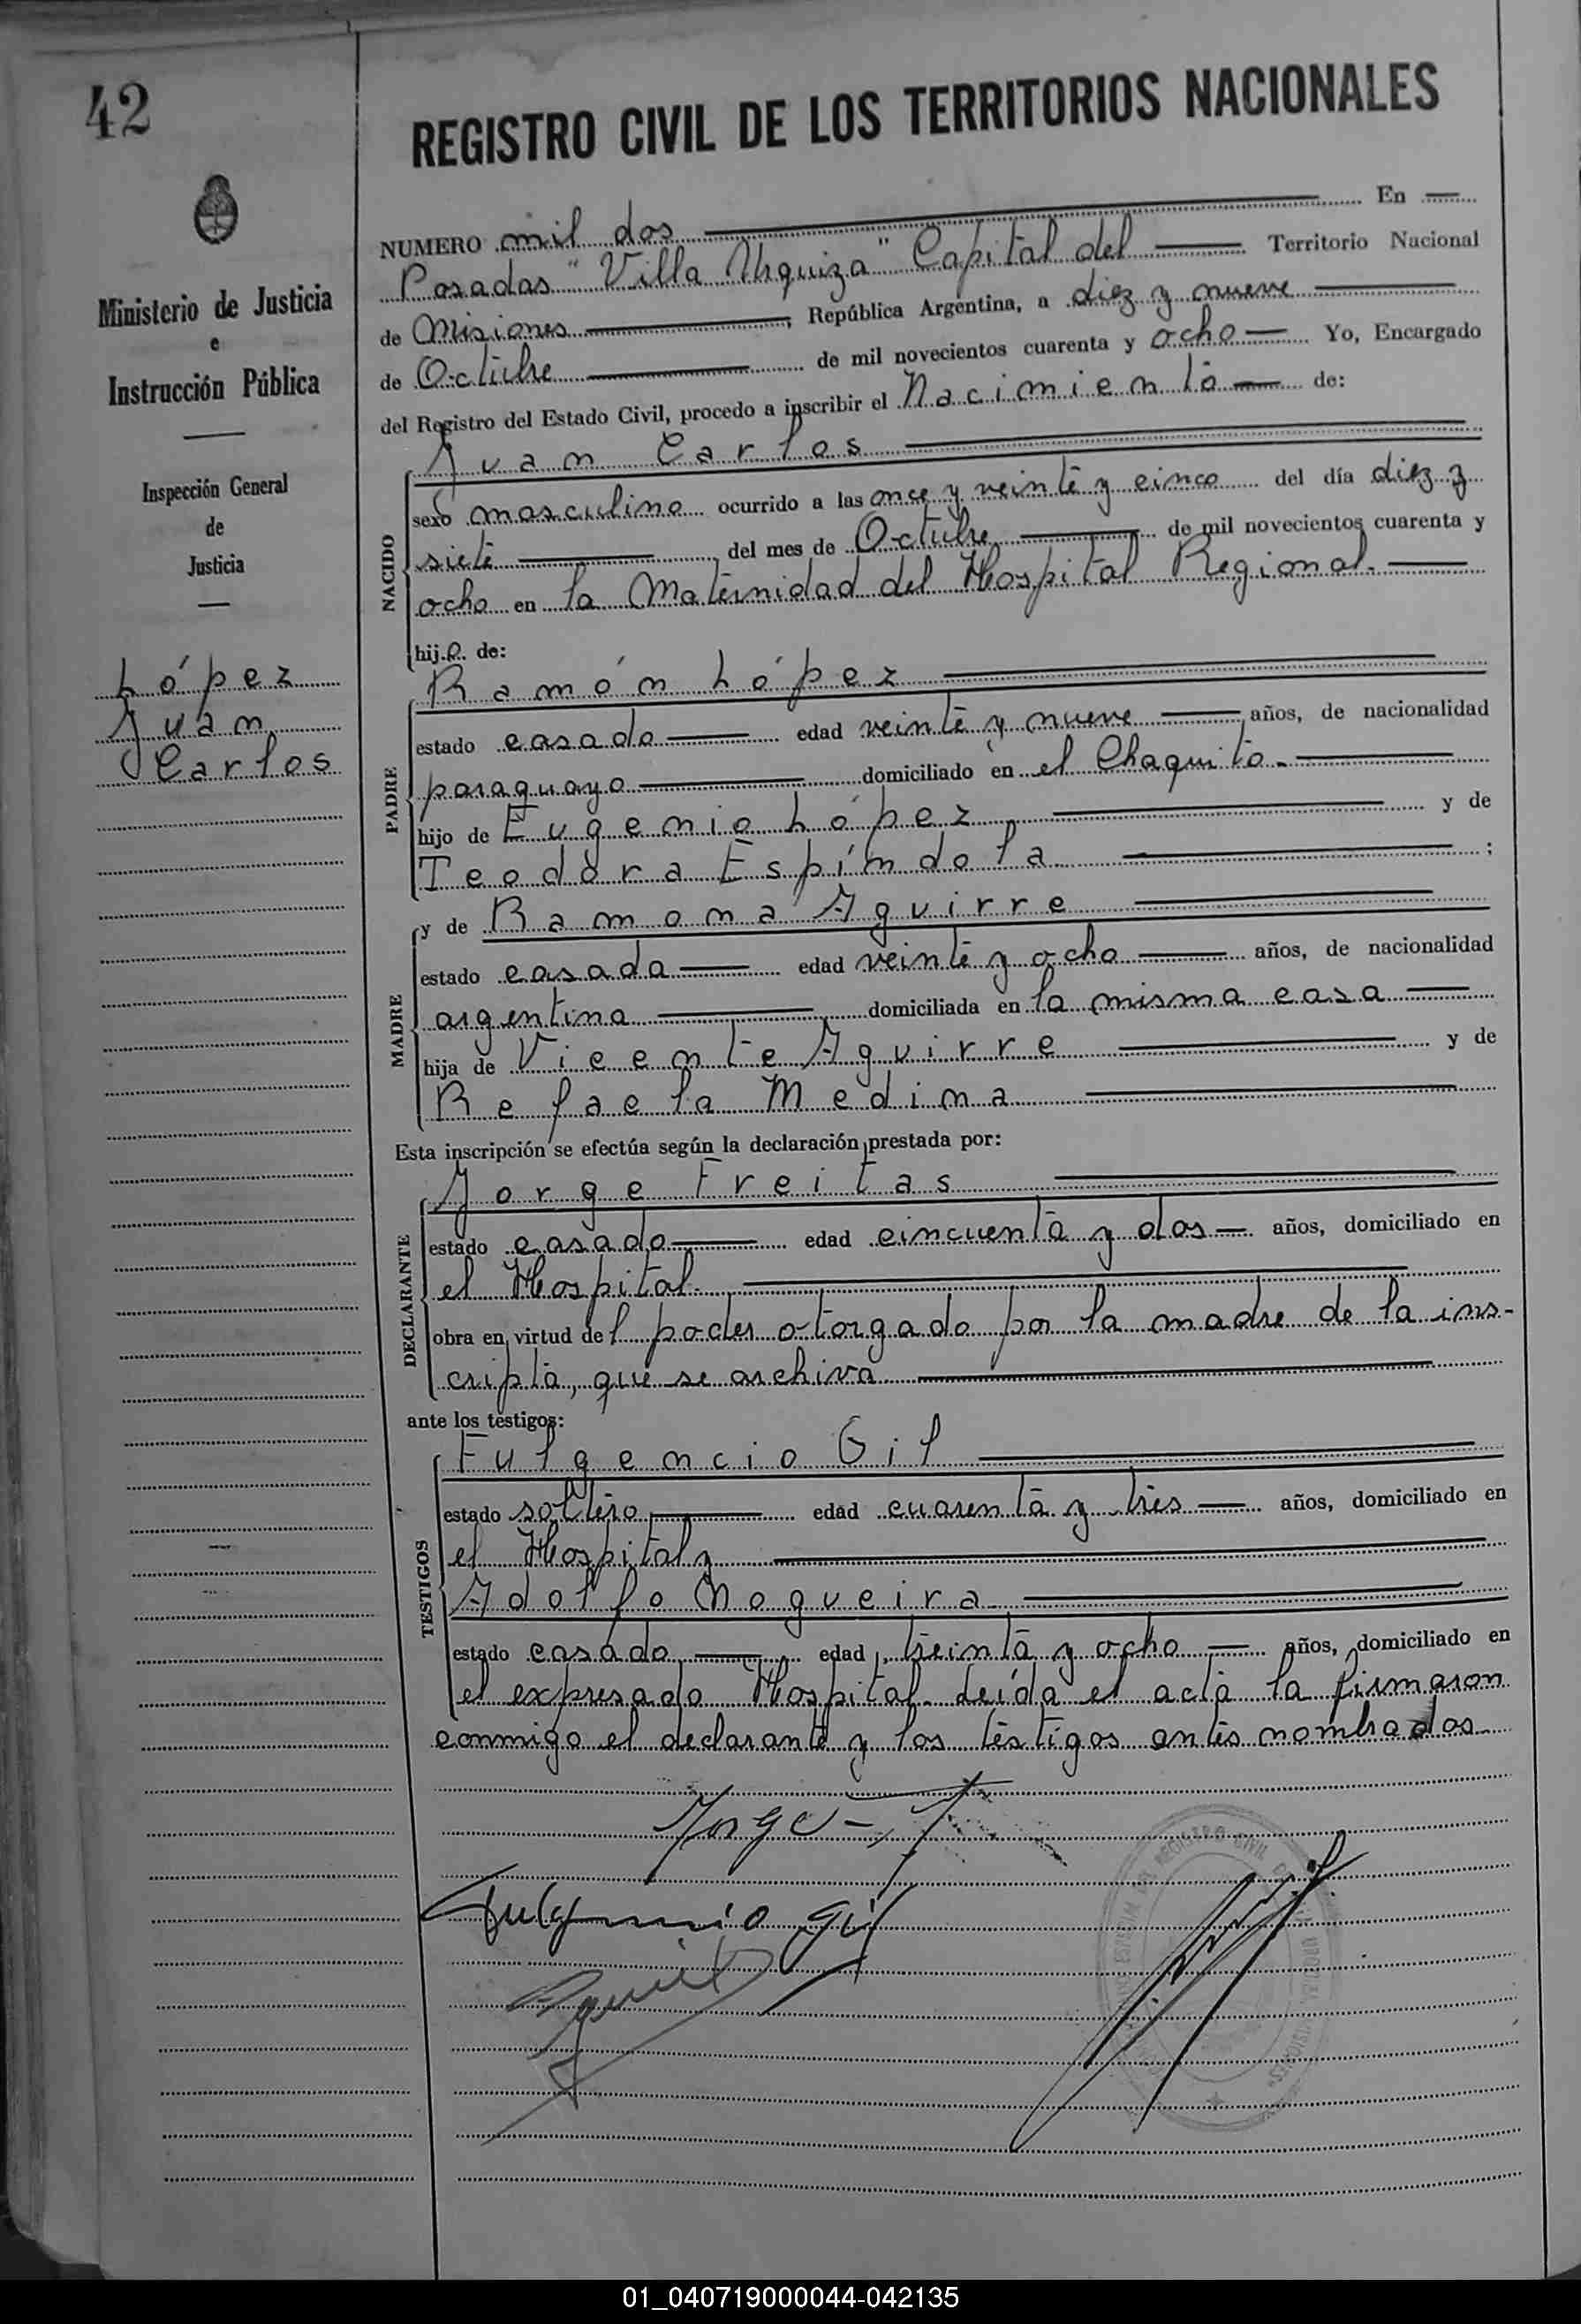 42
Ministerio de Justicia
e
Instrucción Pública
Inspección General
de
Justicia
López
Juan
Carlos
REGISTRO CIVIL DE LOS TERRITORIOS NACIONALES
NUMERO mil dos En
Posadas "Villa Urquiza" Capital del Territorio Nacional
de Misiones, República Argentina, a diez y nueve
de Octubre de mil novecientos cuarenta y ocho Yo, Encargado
del Registro del Estado Civil, procedo a inscribir el Nacimiento de:
NACIDO
Juan Carlos
sexo masculino ocurrido a las once y veinte y cinco del día diez y
siete del mes de Octubre de mil novecientos cuarenta y
ocho en la Maternidad del Hospital Regional.
hijo de:
PADRE
Ramón López
estado casado edad veinte y nueve años, de nacionalidad
paraguayo domiciliado en el Chaquito.
hijo de Eugenio López y de
Teodora Espíndola;
MADRE
y de Ramona Aguirre
estado casada edad veinte y ocho años, de nacionalidad
argentina domiciliada en la misma casa
hija de Vicente Aguirre y de
Refaela Medina
Esta inscripción se efectúa según la declaración prestada por:
DECLARANTE
Jorge Freitas
estado casado edad cincuenta y dos años, domiciliado en
el Hospital.
obra en virtud del poder otorgado por la madre de la ins-
cripta, que se archiva
ante los testigos:
TESTIGOS
Fulgencio Gil
estado soltero edad cuarenta y tres años, domiciliado en
el Hospital y
Adolfo Nogueira
estado casado edad treinta y ocho años, domiciliado en
el expresado Hospital. Leída el acta la firmaron
conmigo el declarante y los testigos antes nombrados
Jorge
Fulgencio Gil
REGISTRO CIVIL
01_040719000044-042135